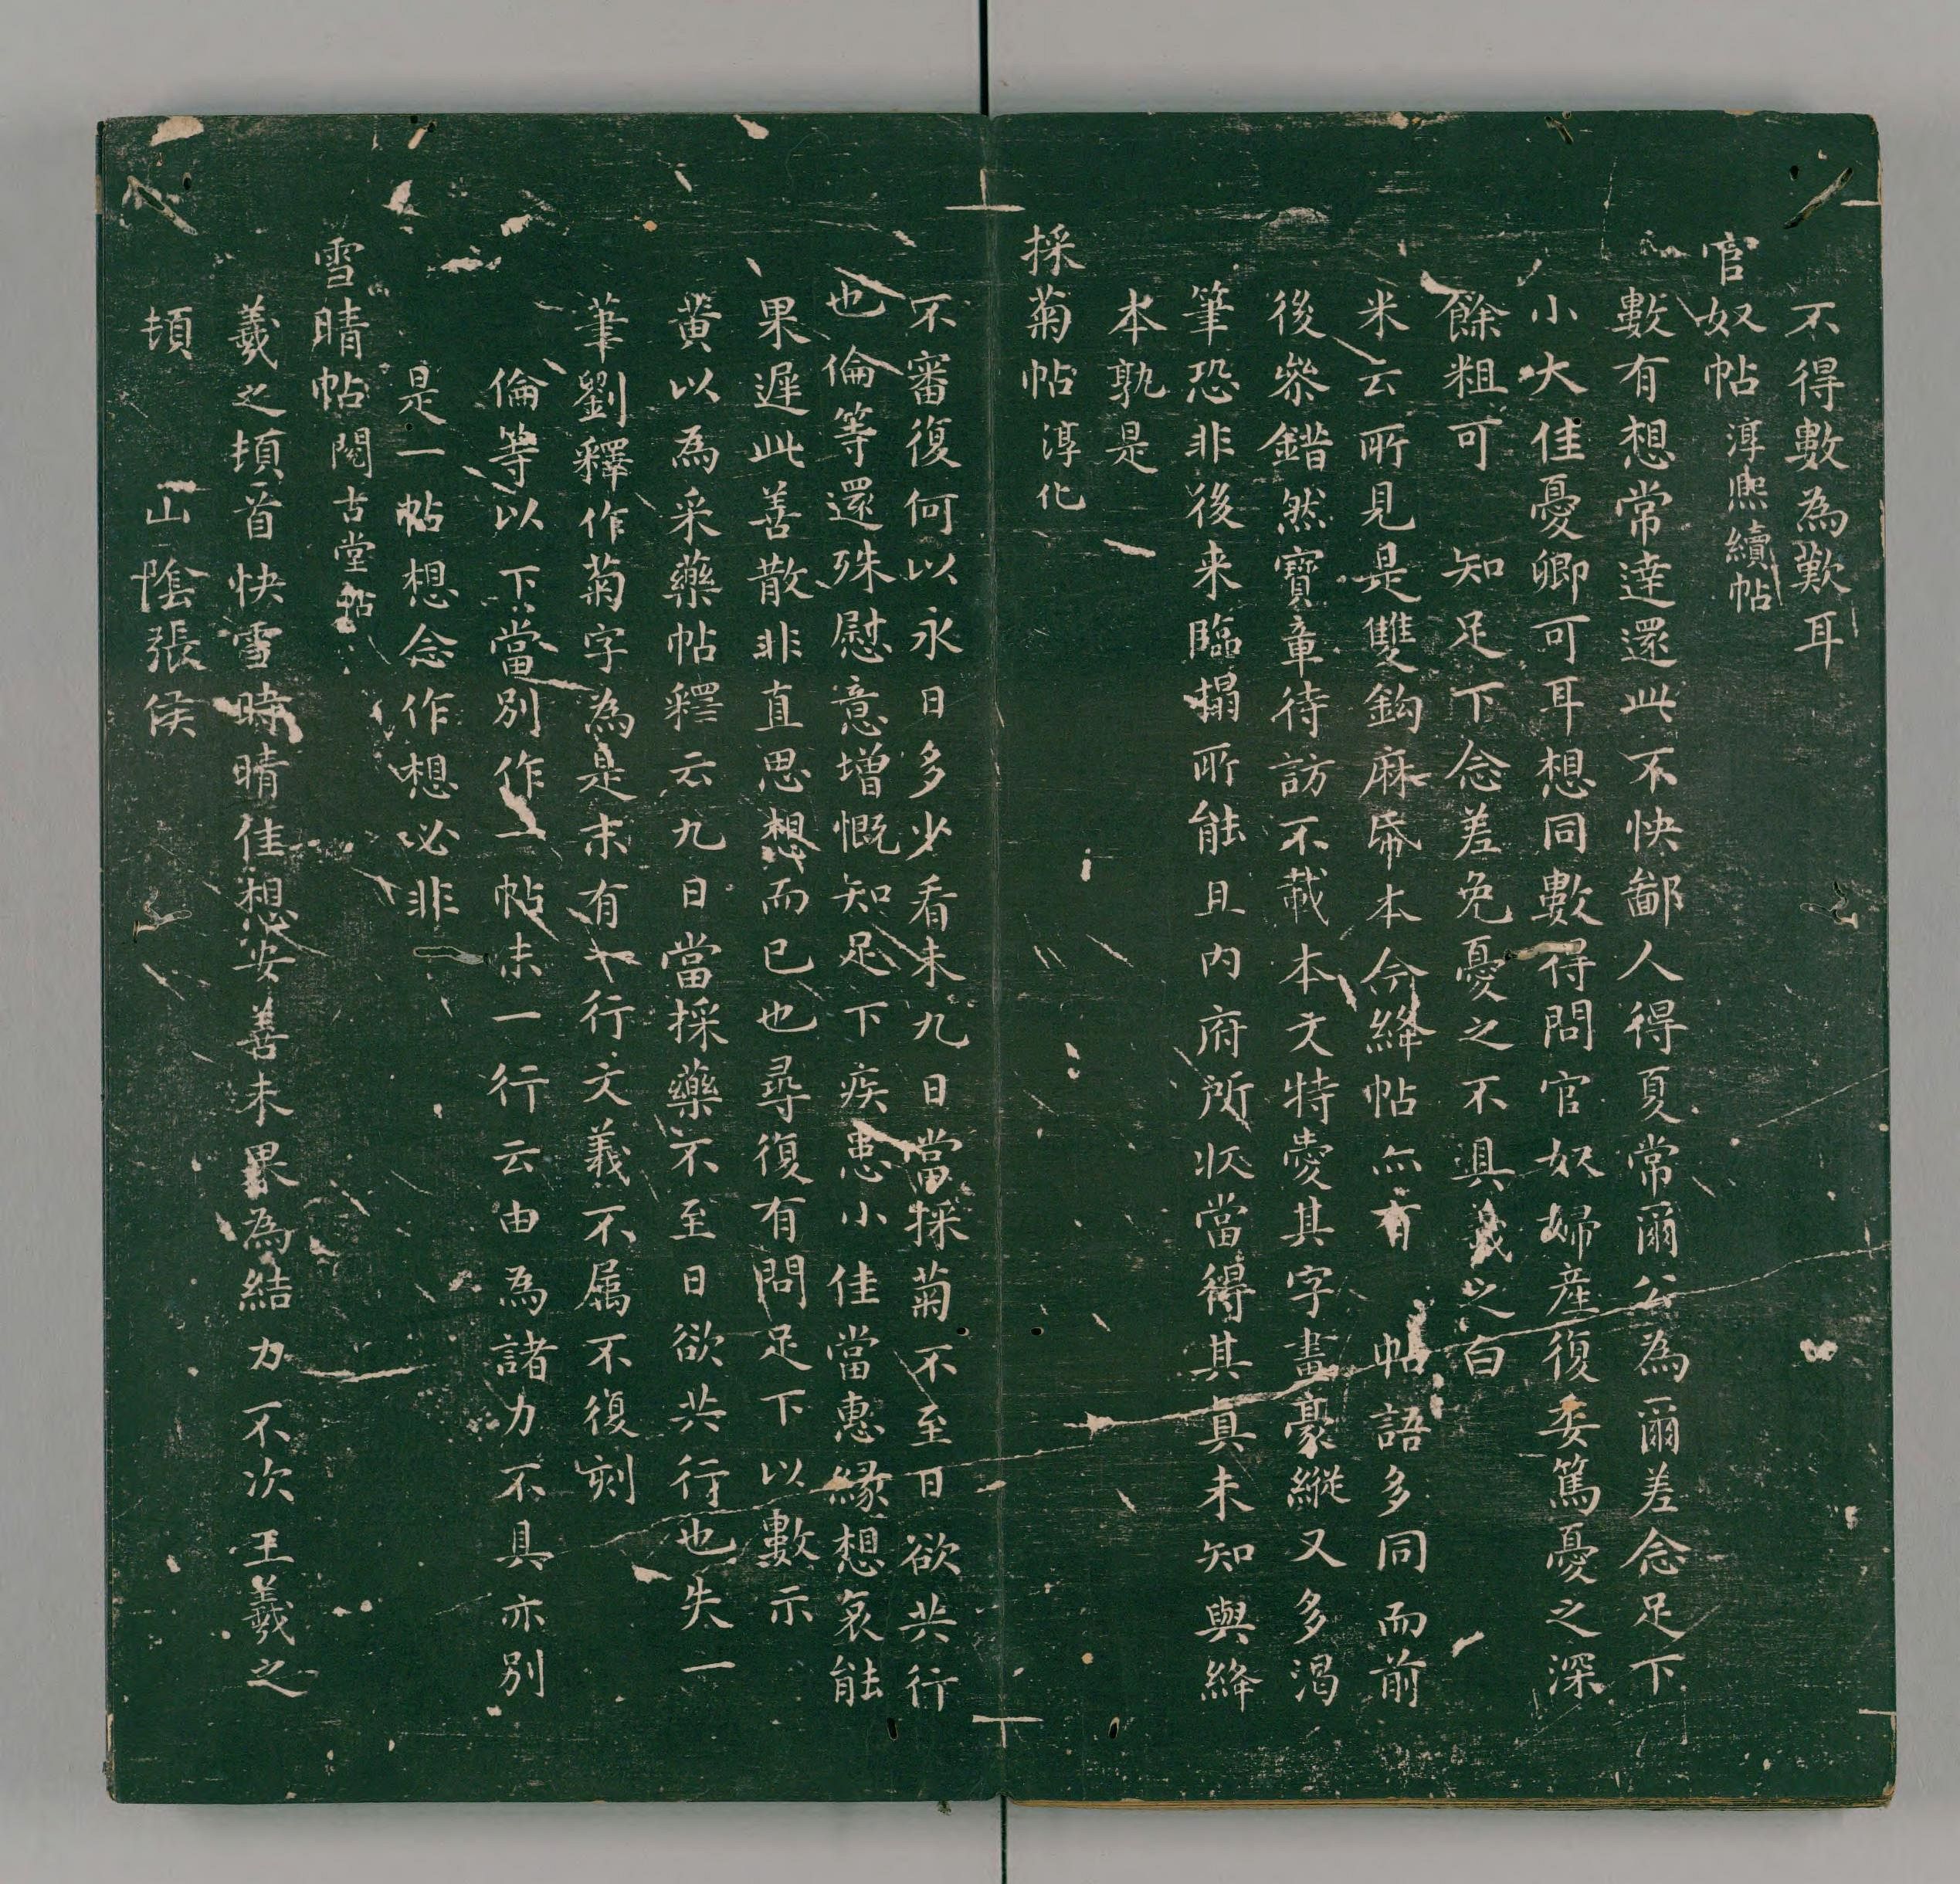 不得數為歎耳
官奴帖 淳熙續帖
數有想常達還此不快鄙人得夏常爾公為爾差念足下
小大佳憂卿可耳想同數得問官奴婦產復委篤憂之深
餘粗可 知足下念差免憂之不具羲之白
米云所見是雙鈎麻帋本今絳帖亦有 帖語多同而前
後叅錯然寶章待訪不載本文特愛其字畫豪縱又多渴
筆恐非後来臨搨所能且内府所收當得其真未知與絳
本孰是
採菊帖 淳化
不審復何以永日多少看未九日當採菊不至日欲共行
也倫等還殊慰意增慨知足下疾患小佳當惠緣想哀能
果遲此善散非直思想而已也尋復有問足下以數示
黄以為采藥帖釋云九日當採藥不至日欲共行也失一
筆劉釋作菊字為是末有十行文義不属不復刻
倫等以下當別作一帖末一行云由為諸力不具亦別
是一帖想念作想必非
雪晴帖 閱古堂帖
羲之頓首快雪時晴佳想安善未果為結力不次王羲之
頓 山陰張侯